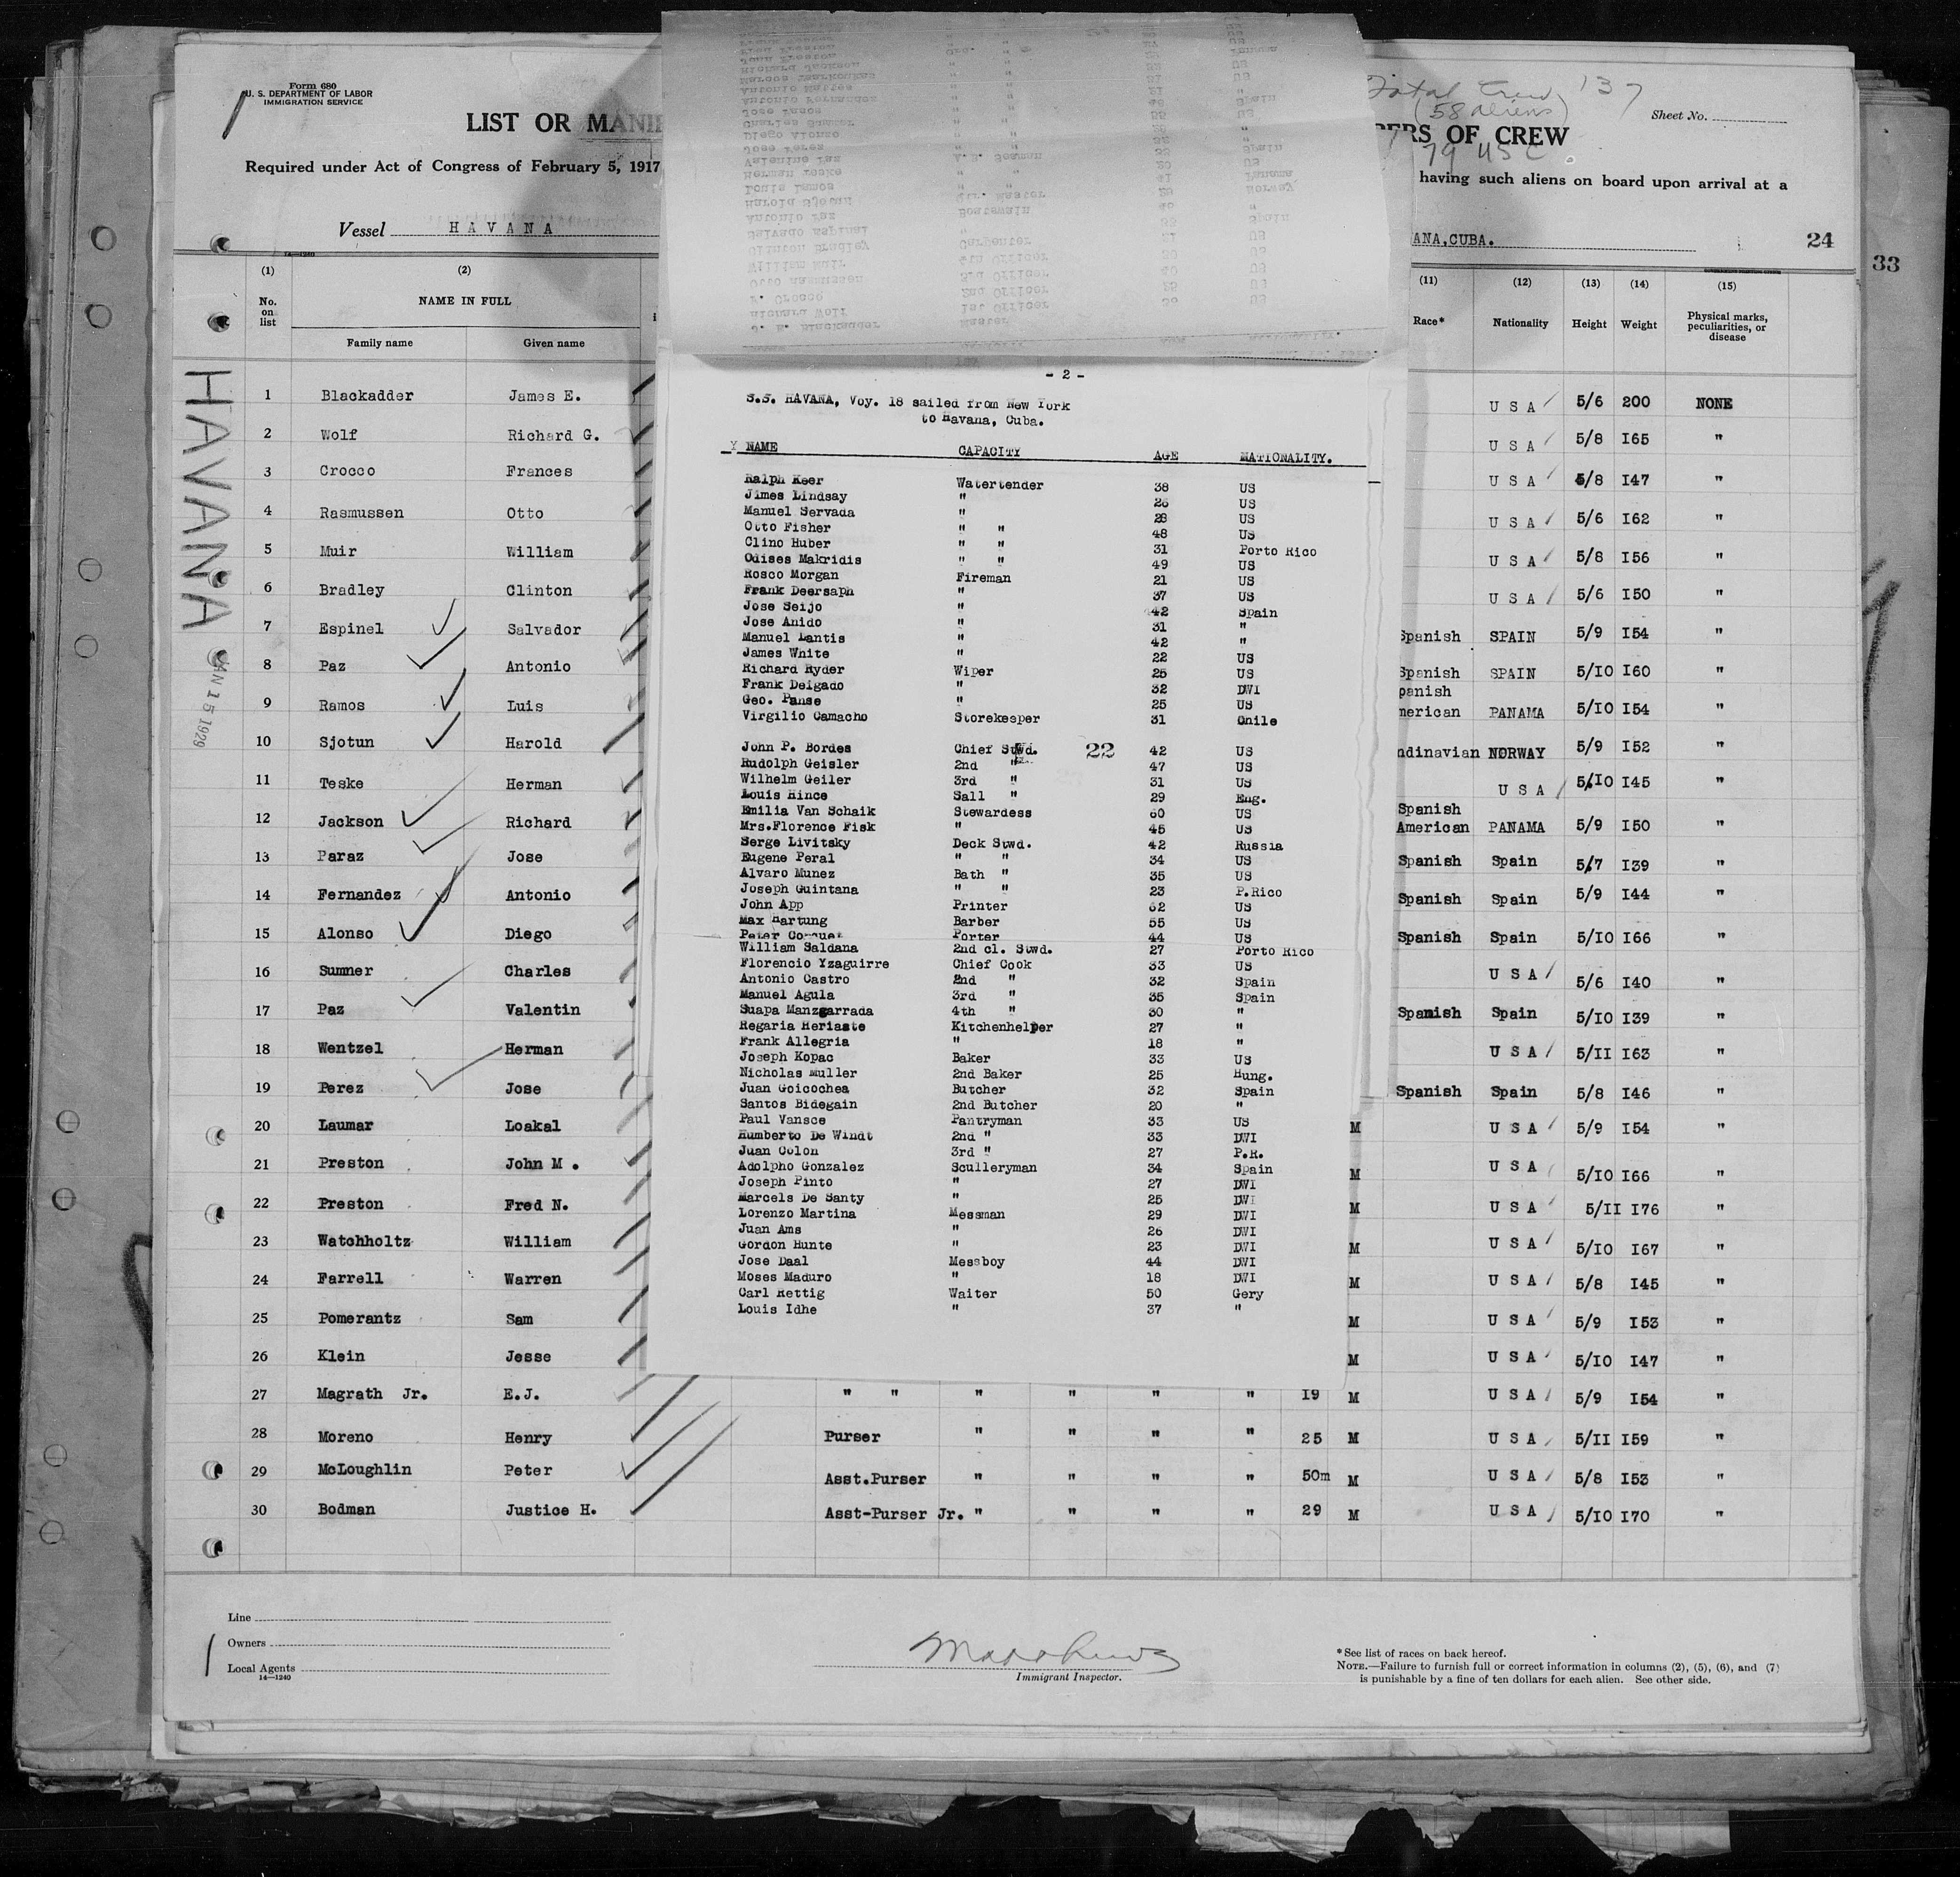 Form 680
U. S. DEPARTMENT OF LABOR
IMMIGRATION SERVICE
Total Crew 137
(58 aliens)
79 USC
Sheet No.
LIST OR MANI
ERS OF CREW
Required under Act of Congress of February 5, 1917
having such aliens on board upon arrival at a
Vessel HAVANA
ANA,CUBA.
24
33
14—1240
(1) (2) (11) (12) (13) (14) (15)
No. on list NAME IN FULL Race* Nationality Height Weight Physical marks, peculiarities, or disease
Family name Given name
HAVANA
JAN 15 1929
1 Blackadder James E. U S A 5/6 200 NONE
2 Wolf Richard G. U S A 5/8 I65 "
3 Crocco Frances U S A 5/8 I47 "
4 Rasmussen Otto U S A 5/6 I62 "
5 Muir William U S A 5/8 I56 "
6 Bradley Clinton U S A 5/6 I50 "
7 Espinel Salvador Spanish SPAIN 5/9 I54 "
8 Paz Antonio Spanish SPAIN 5/10 I60 "
9 Ramos Luis panish merican PANAMA 5/10 I54 "
10 Sjotun Harold ndinavian NORWAY 5/9 I52 "
11 Teske Herman U S A 5/IO I45 "
12 Jackson Richard Spanish American PANAMA 5/9 I50 "
13 Paraz Jose Spanish Spain 5/7 I39 "
14 Fernandez Antonio Spanish Spain 5/9 I44 "
15 Alonso Diego Spanish Spain 5/IO I66 "
16 Sumner Charles U S A 5/6 I40 "
17 Paz Valentin Spanish Spain 5/IO I39 "
18 Wentzel Herman U S A 5/II I63 "
19 Perez Jose Spanish Spain 5/8 I46 "
20 Laumar Loakal M U S A 5/9 I54 "
21 Preston John M . M U S A 5/IO I66 "
22 Preston Fred N. M U S A 5/II I76 "
23 Watchholtz William M U S A 5/IO I67 "
24 Farrell Warren M U S A 5/8 I45 "
25 Pomerantz Sam M U S A 5/9 I53 "
26 Klein Jesse M U S A 5/IO I47 "
27 Magrath Jr. E.J. " " " " " " I9 M U S A 5/9 I54 "
28 Moreno Henry Purser " " " " 25 M U S A 5/II I59 "
29 McLoughlin Peter Asst.Purser " " " " 50m M U S A 5/8 I53 "
30 Bodman Justice H. Asst-Purser Jr. " " " " 29 M U S A 5/IO I70 "
- 2 -
S.S. HAVANA, Voy. 18 sailed from New York
to Havana, Cuba.
NAME CAPACITY AGE NATIONALITY.
Ralph Keer Watertender 38 US
Jimes Lindsay " 26 US
Manuel Servada " 28 US
Otto Fisher " " 48 US
Clino Huber " " 31 Porto Rico
Odises Makridis " " 49 US
Rosco Morgan Fireman 21 US
Frank Deersaph " 37 US
Jose Seijo " 42 Spain
Jose Anido " 31 "
Manuel Lantis " 42 "
James White " 22 US
Richard Ryder Wiper 25 US
Frank Delgado " 32 DWI
Geo. Panse " 25 US
Virgilio Camacho Storekeeper 31 Chile
John P. Bordes Chief Stwd. 22 42 US
Rudolph Geisler 2nd " 47 US
Wilhelm Geiler 3rd " 31 US
Louis Hince Sall " 29 Eng.
Emilia Van Schaik Stewardess 60 US
Mrs.Florence Fisk " 45 US
Serge Livitsky Deck Stwd. 42 Russia
Eugene Peral " " 34 US
Alvaro Munez Bath " 35 US
Joseph Guintana " " 23 P.Rico
John App Printer 62 US
Max Hartung Barber 55 US
Peter Porter 44 US
William Saldana 2nd cl. Stwd. 27 Porto Rico
Florencio Yzaguirre Chief Cook 33 US
Antonio Castro 2nd " 32 Spain
Manuel Agula 3rd " 35 Spain
Suapa Manzgarrada 4th " 30 "
Regaria Heriaste Kitchenhelper 27 "
Frank Allegria " 18 "
Joseph Kopac Baker 33 US
Nicholas Muller 2nd Baker 25 Hung.
Juan Goicochea Butcher 32 Spain
Santos Bidegain 2nd Butcher 20 "
Paul Vansce Pantryman 33 US
Humberto De Windt 2nd " 33 DWI
Juan Colon 3rd " 27 P.R.
Adolpho Gonzalez Sculleryman 34 Spain
Joseph Pinto " 27 DWI
Marcels De Santy " 25 DWI
Lorenzo Martina Messman 29 DWI
Juan Ams " 26 DWI
Gordon Hunte " 23 DWI
Jose Daal Messboy 44 DWI
Moses Maduro " 18 DWI
Carl Rettig Waiter 50 Gery
Louis Idhe " 37 "
Line
Owners
Local Agents
14—1240
Immigrant Inspector.
* See list of races on back hereof.
NOTE.—Failure to furnish full or correct information in columns (2), (5), (6), and (7)
is punishable by a fine of ten dollars for each alien. See other side.